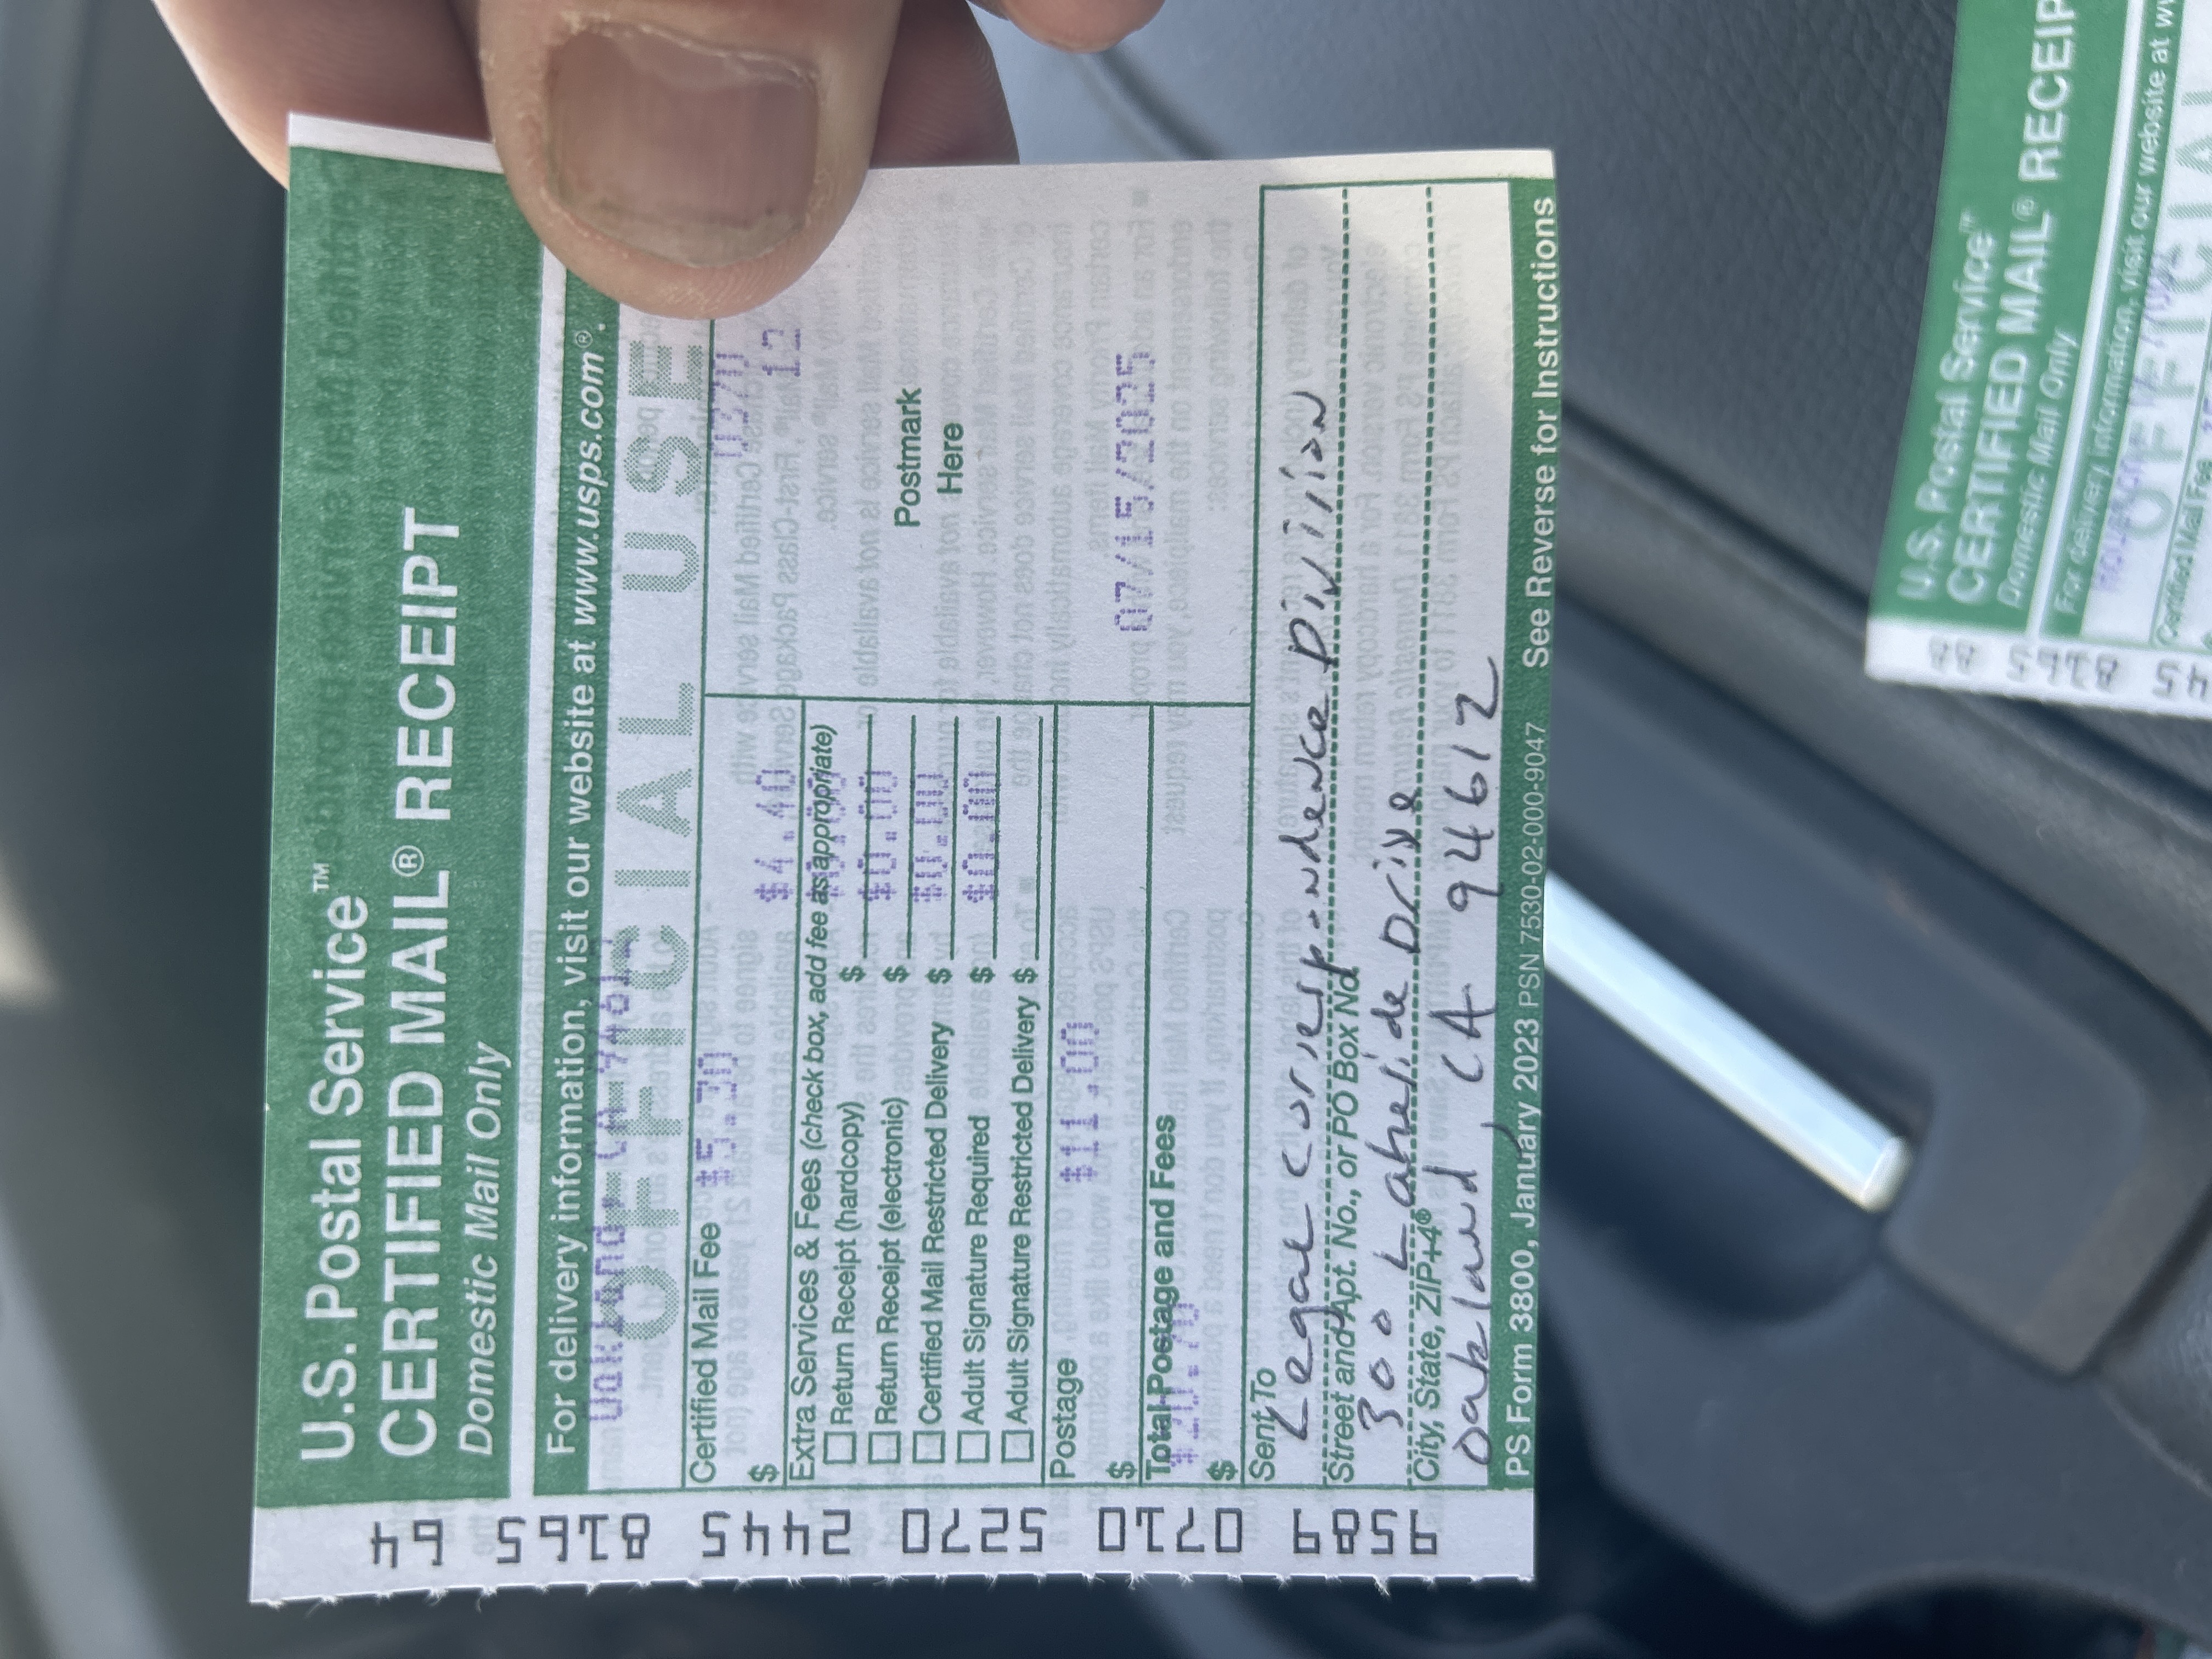 U.S. Postal Service™
CERTIFIED MAIL® RECEIPT
Domestic Mail Only
For delivery information, visit our website at www.usps.com®.
Oakland, CA 94612
OFFICIAL USE
Certified Mail Fee $5.30
$
$4.40
Extra Services & Fees (check box, add fee as appropriate)
$0.00
Return Receipt (hardcopy) $
$0.00
Return Receipt (electronic) $
$0.00
Certified Mail Restricted Delivery $
$0.00
Adult Signature Required $
Adult Signature Restricted Delivery $
Postage $11.00
$
Total Postage and Fees
$20.70
$
0370
12
Postmark
Here
07/15/2025
Sent To
Legal Correspondence Division
Street and Apt. No., or PO Box No.
300 Lakeside Drive
City, State, ZIP+4®
Oakland, CA 94612
PS Form 3800, January 2023 PSN 7530-02-000-9047 See Reverse for Instructions
9589 0710 5270 2445 8165 64
U.S. Postal Service™
CERTIFIED MAIL® RECEIP
Domestic Mail Only
For delivery information, visit our website at w
OFFICIAL
Certified Mail Fee
45 8165 88